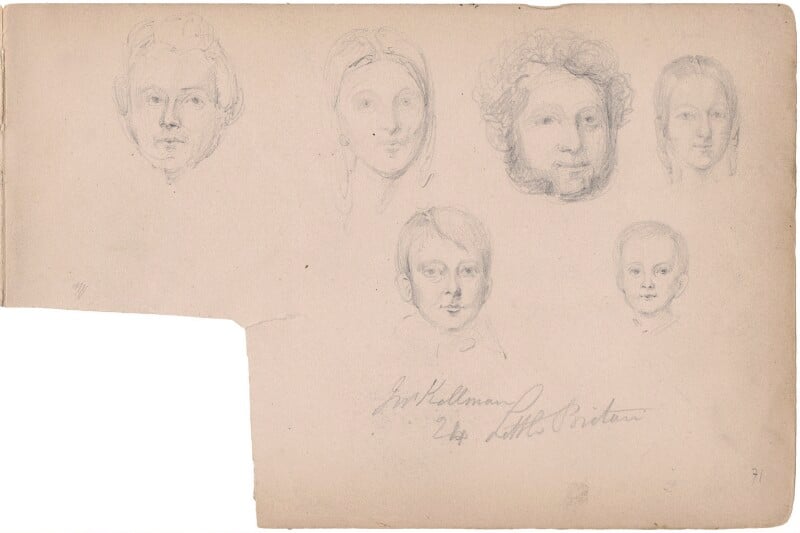 Jno Kollman
24 Little Britain
71